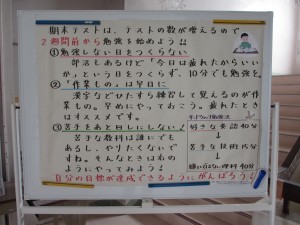 期末テストは、テストの数が増えるので
2週間前から勉強を始めよう!!
①勉強しない日をつくらない
部活もあるけど「今日は疲れたからいい
か」という日をつくらず、10分でも勉強を。
②「作業もの」は早目に
漢字などひたすら練習して覚えるのが作
業もの。早めにやっておこう。疲れたとき
はオススメです。
③苦手をあと回しにしない!
苦手な教科は誰にでも
あるし、やりたくないで
すね。そんなときは右の
ようにやってみよう!
サンドウィッチ勉強法
好きな英語40分
↓
苦手な技術15分
↓
嫌いではない理科40分
自分の目標が達成できるようにがんばろう!